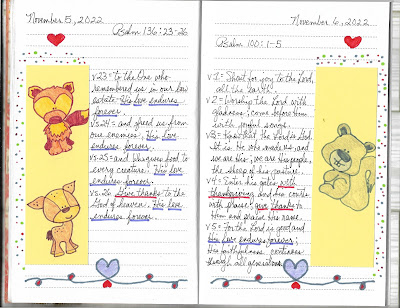 November 5, 2022
Psalm 136:23-26
v23= to the One who
remembered us in our low
estate. His love endures
forever.
v.24= and freed us from
our enemies. His love
endures forever.
v.25= and Who gives food to
every creature. His love
endures forever.
v.26 Give thanks to the
God of heaven. His love
endures forever.
November 6, 2022
Psalm 100:1-5
v1= Shout for joy to the Lord,
all the earth.
v2= Worship the Lord with
gladness; come before him
with joyful songs.
v3= Know that the Lord is God.
It is He who made us, and
we are his; we are His people,
the sheep of his pasture.
v4= Enter his gates with
thanksgiving and his courts
with praise; give thanks to
Him and praise His name.
v5= For the Lord is good and
His love endures forever;
His faithfulness continues
through all generations.